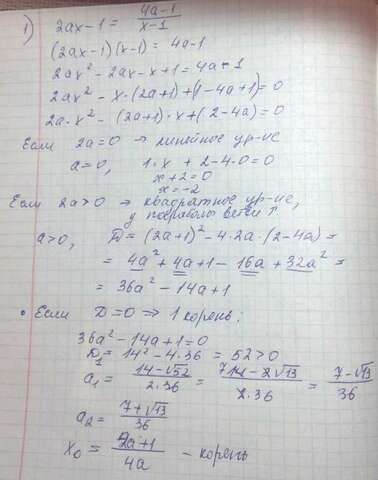 1) 2ax-1 = (4a-1)/(x-1)
(2ax-1)(x-1) = 4a-1
2ax² - 2ax - x + 1 = 4a - 1
2ax² - x·(2a+1) + (1-4a+1) = 0
2a·x² - (2a+1)·x + (2-4a) = 0
Если 2a=0 → линейное ур-ие
a=0, 1·x + 2-4·0=0
x+2=0
x=-2
Если 2a>0 → квадратное ур-ие,
у параболы ветви ↑
a>0, D = (2a+1)² - 4·2a·(2-4a) =
= 4a² + 4a + 1 - 16a + 32a² =
= 36a² - 14a + 1
• Если D=0 ⇒ 1 корень:
36a² - 14a + 1 = 0
D₁ = 14² - 4·36 = 52 > 0
a₁ = (14-√52)/(2·36) = (14-2√13)/(2·36) = (7-√13)/36
a₂ = (7+√13)/36
x₀ = (2a+1)/(4a) - корень